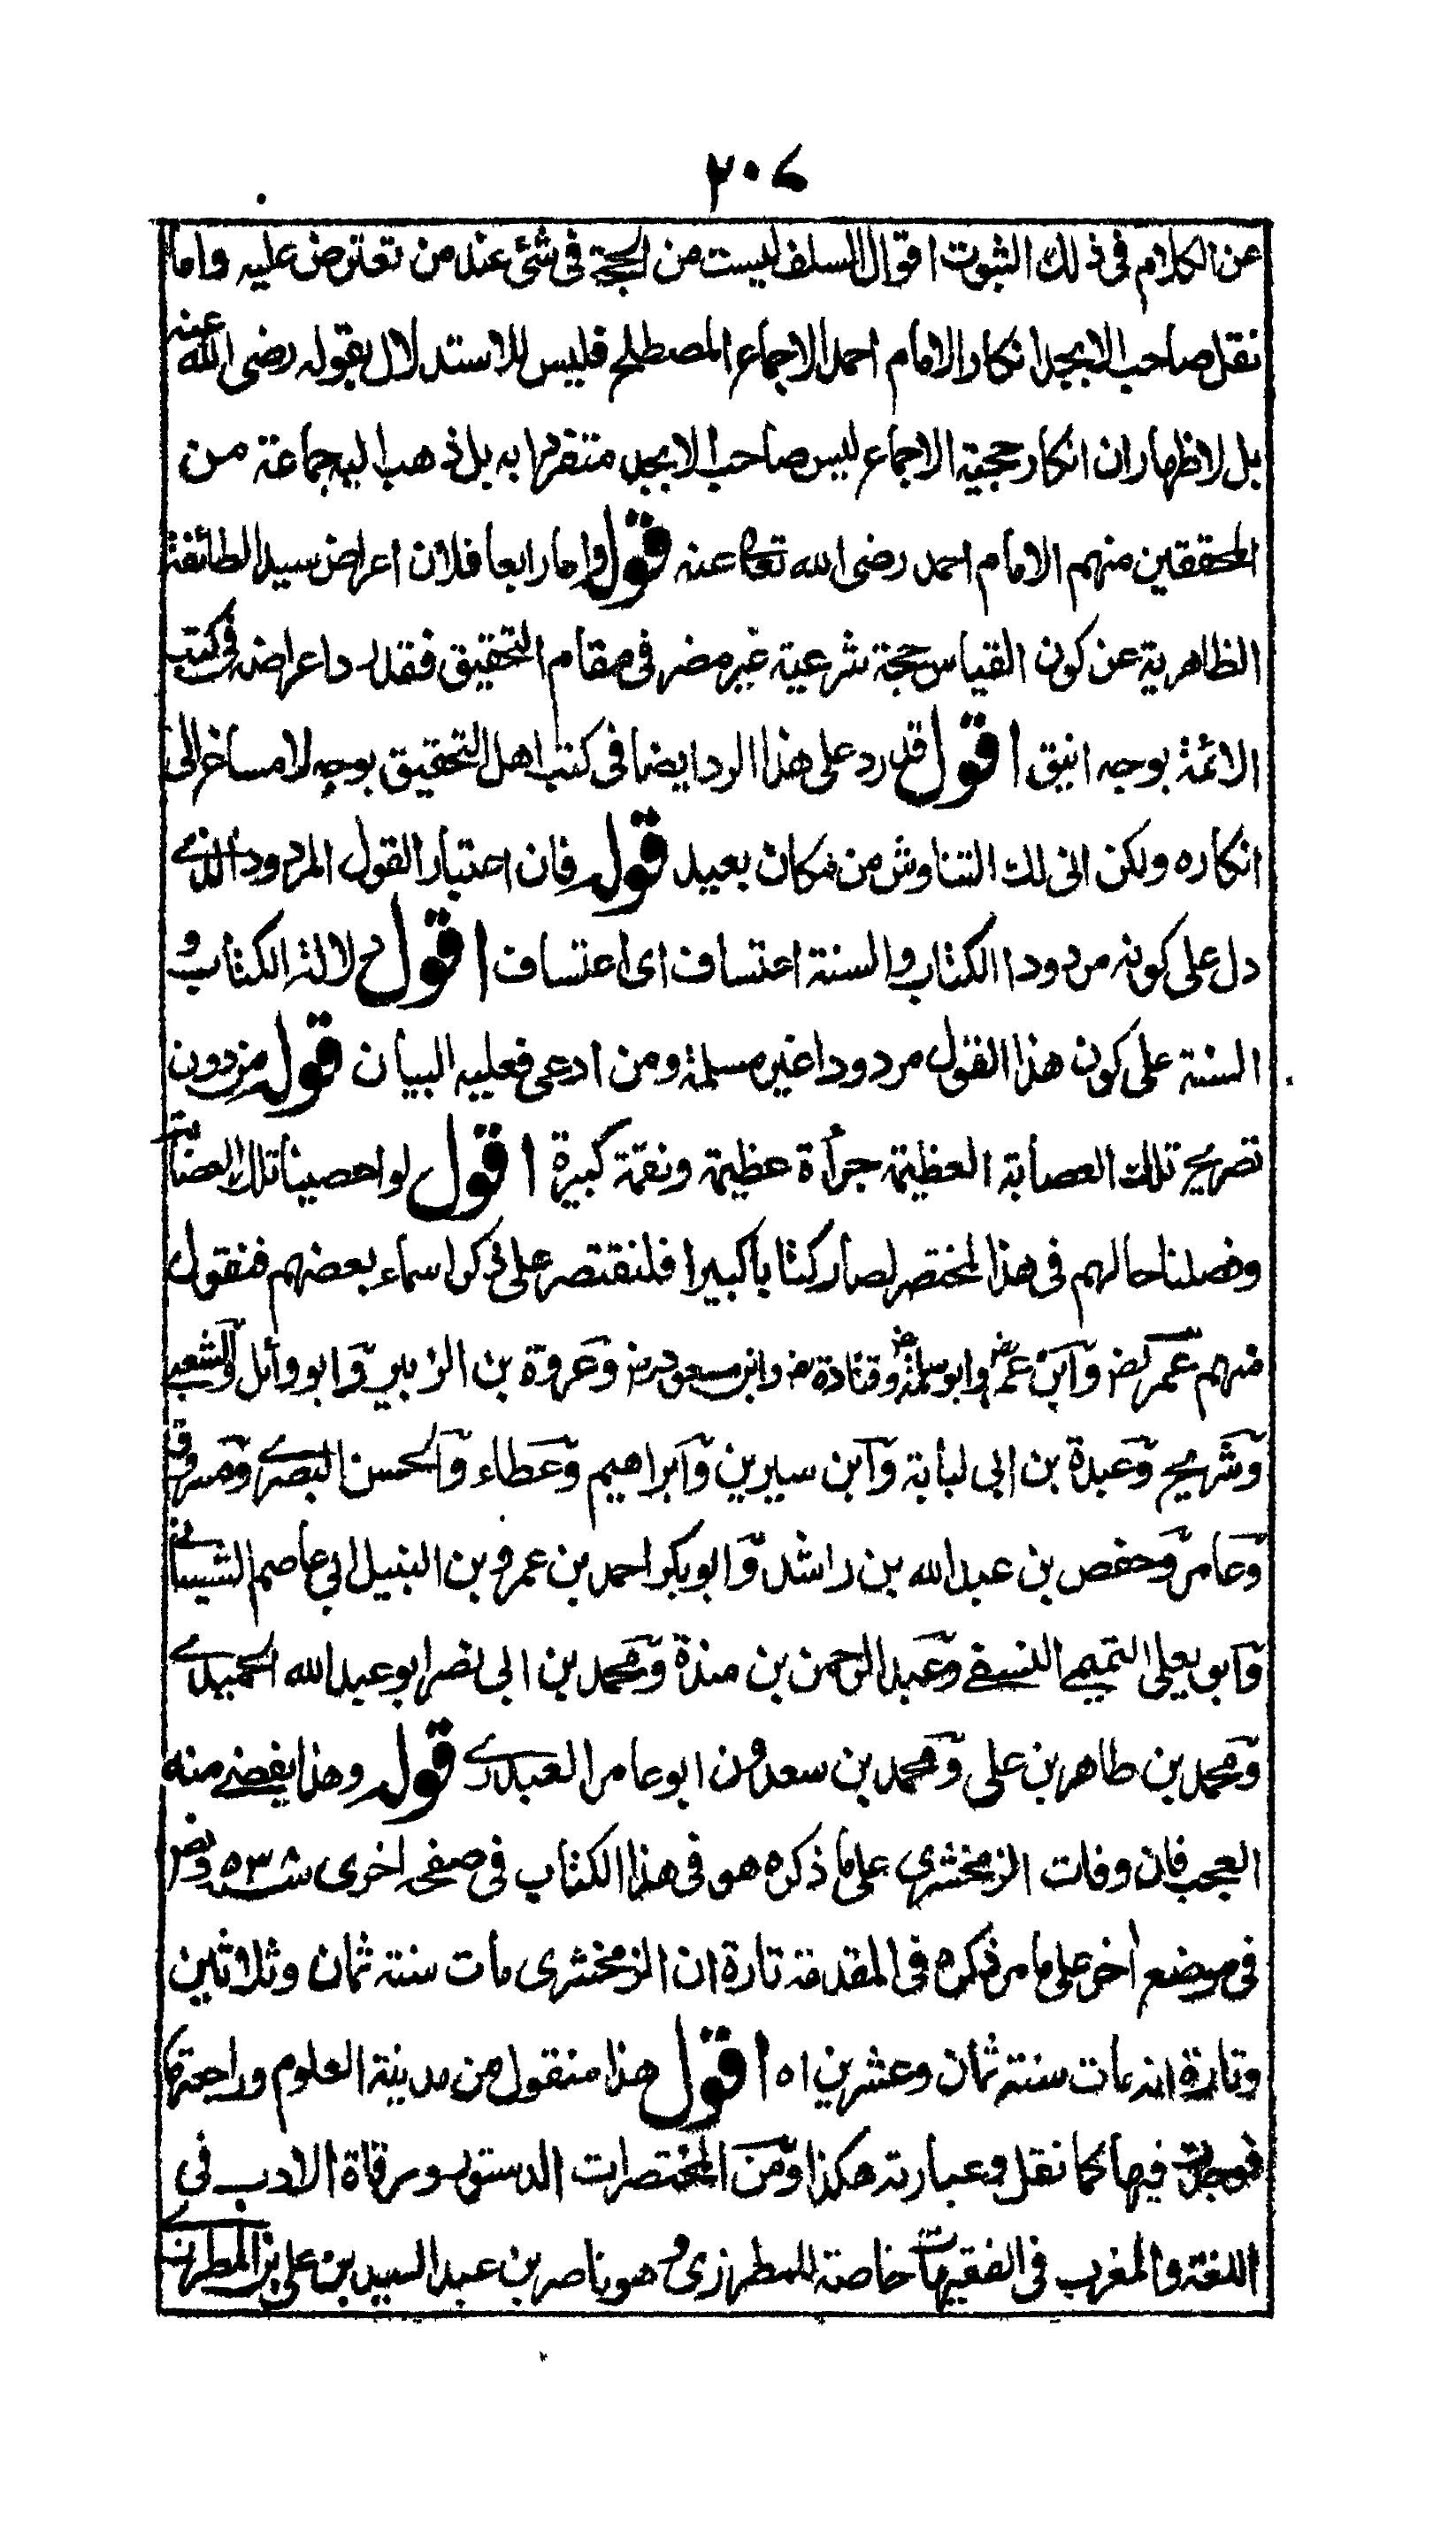 ٢٠٧
عن الكلام فى ذلك الثبوت اقوال السلف ليست من الحجة فى شئ عند من تعترض عليه واما
نقل صاحب الابجد انكار الامام احمد الاجماع المصطلح فليس للاستدلال بقوله رضى الله عنه
بل لاظهار ان انكار حجية الاجماع ليس صاحب الابجد متفردا به بل ذهب اليه جماعة من
المحققين منهم الامام احمد رضى الله تعالى عنه قوله واما رابعا فلان اعراض سيد الطائفة
الظاهرية عن كون القياس حجة شرعية غير مضر فى مقام التحقيق فقد رد اعراضه فى كتب
الائمة بوجه انيق اقول قد رد على هذا الرد ايضا فى كتب اهل التحقيق بوجه لا مساغ الى
انكاره ولكن انى لك التناوش من مكان بعيد قوله فان اعتبار القول المردود الذى
دل على كونه مردودا الكتاب والسنة اعتساف اى اعتساف اقول دلالة الكتاب و
السنة على كون هذا القول مردودا غير مسلمة ومن ادعى فعليه البيان قوله من دون
تصريح تلك العصابة العظيمة جرأة عظيمة ونقمة كبيرة اقول لو احصينا تلك العصابة
وفصلنا حالهم فى هذا المختصر لصار كتابا كبيرا فلنقتصر على ذكر اسماء بعضهم فنقول
منهم عمر رض وابن عمر رض وابو سلمة رض وقتادة رض وابن مسعود رض وعروة بن الزبير وابو وائل والشعبى
وشريح وعبدة بن ابى لبابة وابن سيرين وابراهيم وعطاء والحسن البصرى ومسروق
وعامر وحفص بن عبد الله بن راشد وابو بكر احمد بن عمرو بن النبيل ابى عاصم الشيبانى
وابو يعلى التميمى النسفى وعبد الرحمن بن مندة ومحمد بن ابى نصر ابو عبد الله الحميدى
ومحمد بن طاهر بن على ومحمد بن سعدون ابو عامر العبدرى قوله وهذا يفضى منه
العجب فان وفات الزمخشرى على ما ذكره هو فى هذا الكتاب فى صفحه اخرى سنة ٥٣ ونص
فى موضع اخر على ما مر ذكره فى المقدمة تارة ان الزمخشرى مات سنة ثمان وثلاثين
وتارة انه مات سنة ثمان وعشرين اه اقول هذا منقول من مدينة العلوم وراجعتها
فوجدت فيها كما نقل وعبارته هكذا ومن المختصرات الدستور ومرقاة الادب فى
اللغة والمغرب فى الفقهيات خاصة للمطرزى وهو ناصر بن عبد السيد بن على بن المطرزى